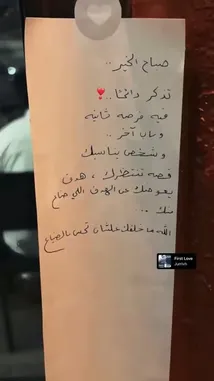 صباح الخير ..
تذكر دائمًا..
فيه فرصه ثانيه
وباب آخر ..
وشخص يناسبك
قصه تنتظرك ، هدف
يعوضك عن الهدف اللي ضاع
منك ..
الله ما خلقك علشان تحس بالضياع
First Love